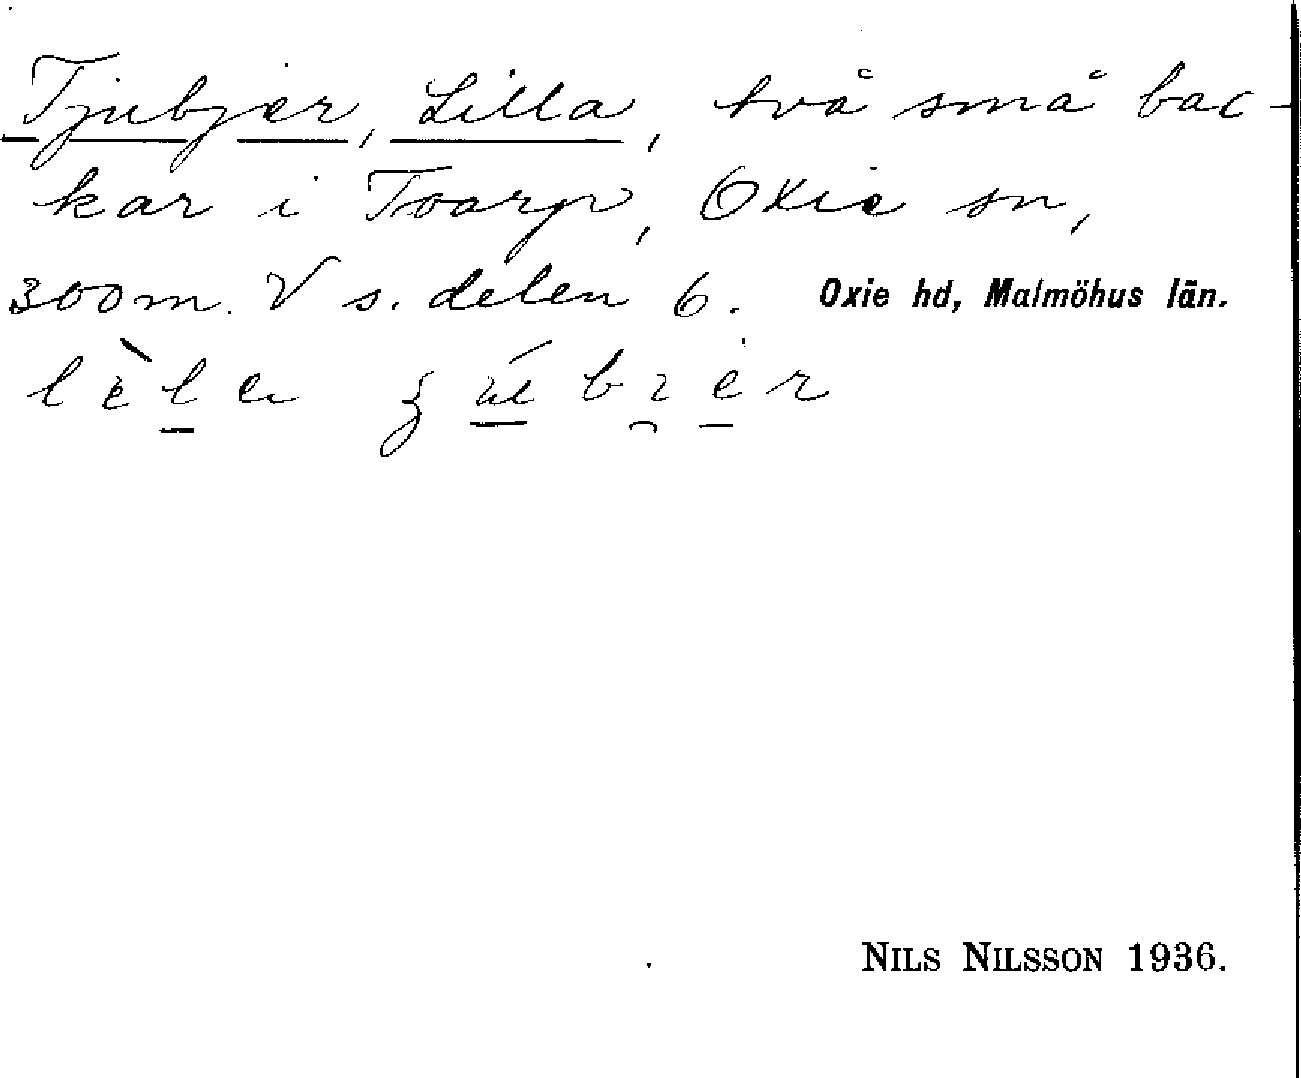 Tjubjer, Lilla, två små bac-
kar i Toarp, Oxie sn,
300 m. V s. delen 6. Oxie hd, Malmöhus län.
NILS NILSSON 1936.